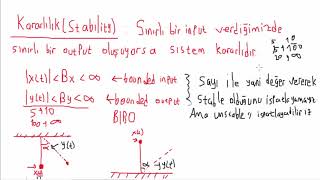 Kararlılık (Stability) Sınırlı bir input verdiğimizde
sınırlı bir output oluşuyorsa sistem kararlıdır
5 +100
20 +∞
|x(t)| < Bx < ∞ ← bounded input
|y(t)| < By < ∞ ← bounded output
Sayı ile yani değer vererek
Stable olduğunu
Ama unstable
5 +10
100 +∞
BIBO
α
y(t)
x(t)
x(t)
α
y(t)